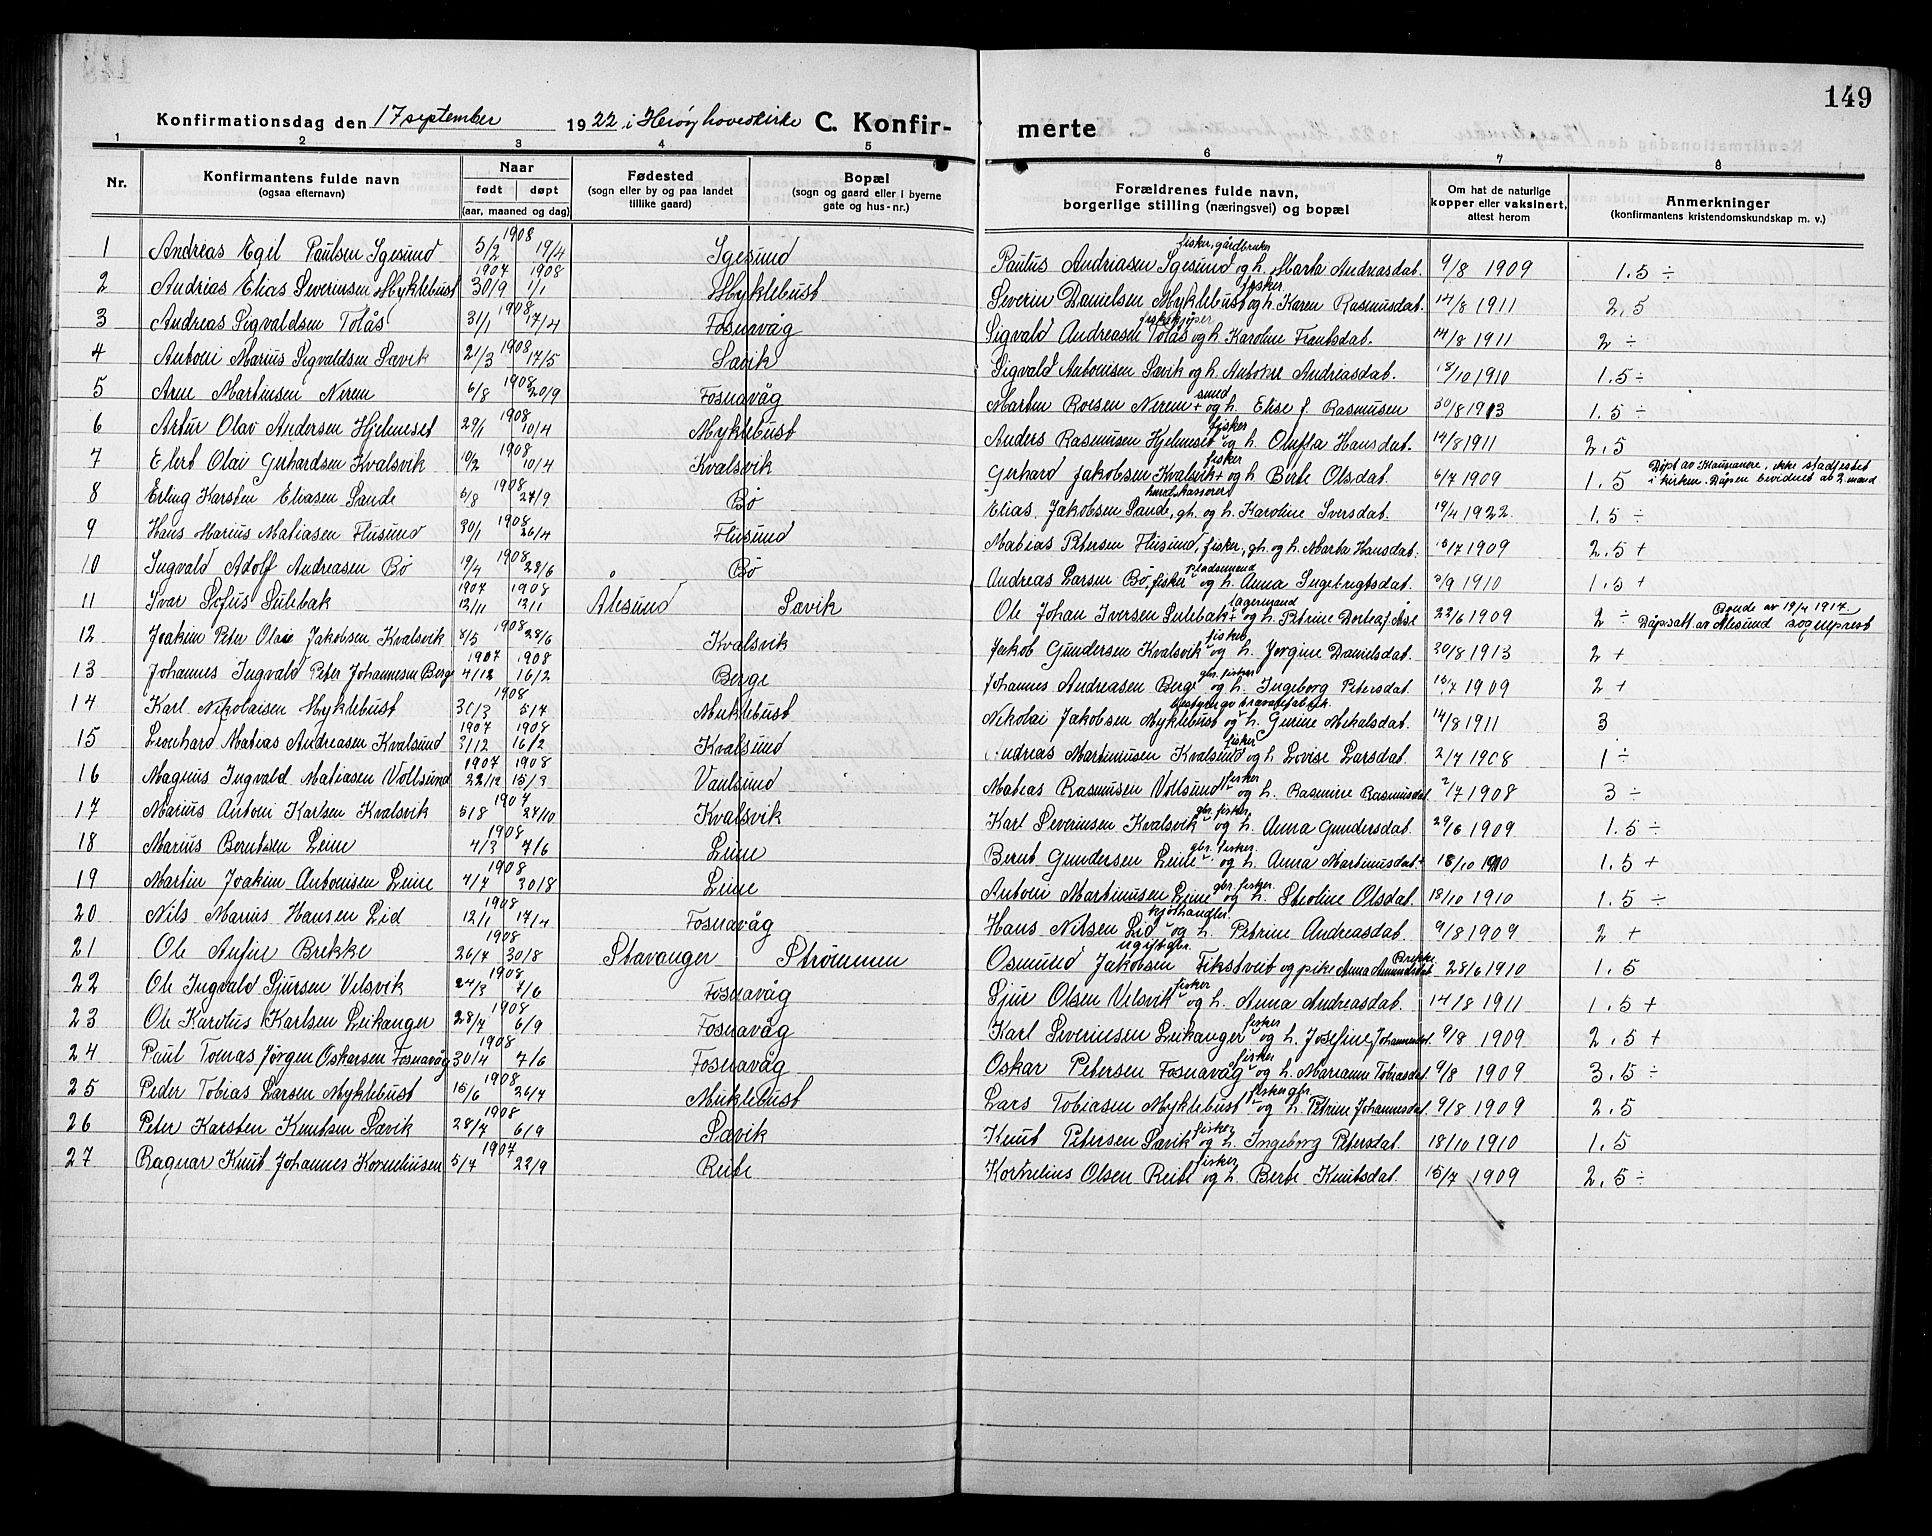 149
Konfirmationsdag den 17 september 1922 i Herøy hovedkirke C. Konfirmerte
1 2 3 4 5 6 7 8
Nr. | Konfirmantens fulde navn (ogsaa efternavn) | Naar født døpt (aar, maaned og dag) | Fødested (sogn eller by og paa landet tillike gaard) | Bopæl (sogn og gaard eller i byerne gate og hus-nr.) | Forældrenes fulde navn, borgerlige stilling (næringsvei) og bopæl | Om hat de naturlige kopper eller vaksinert, attest herom | Anmerkninger (konfirmantens kristendomskundskap m. v.)
1 Andreas Egil Paulsen Igesund 1908 5/2 19/4 Igesund Paulus Andreasen Igesund fisker, gårdbruker og h. Marta Andreasdat. 9/8 1909 1.5 ÷
2 Andreas Elias Severinsen Myklebust 1907 30/9 1908 1/1 Myklebust Severin Danielsen Myklebust fisker og h. Karen Rasmusdat. 14/8 1911 2,5
3 Andreas Sigvaldsen Tolås 1908 31/1 17/4 Fosnavåg Sigvald Andreasen Tolås fiskekjøper og h. Karoline Frantsdat. 14/8 1911 2 ÷
4 Antoni Marius Sigvaldsen Sævik 1908 21/3 17/5 Sævik Sigvald Antonisen Sævik og h. Andreasdat. 18/10 1910 1.5 ÷
5 Arne Martinsen Nerem 1908 6/8 20/9 Fosnavåg Martin Roesen Nerem + smed og h. Elise f. Rasmusen 30/8 1913 1.5 ÷
6 Artur Olav Andersen Hjelmeset 1908 29/1 10/4 Myklebust Anders Rasmusen Hjelmeset fisker og h. Oluffa Hansdat. 14/8 1911 2.5
7 Elert Olai Gerhardsen Kvalsvik 1908 10/2 10/4 Kvalsvik Gerhard Jakobsen Kvalsvik + fisker og h Birte Olsdat. 6/7 1909 1.5 Døpt av , ikke stadfestet i kirken. Dåpen bevidnet av 2 mænd
8 Erling Karsten Eliasen Sande 1908 5/8 27/9 Bø Elias Jakobsen Sande, herredskasserer gb. og h. Karoline Iversdat. 19/4 1922 1.5 ÷
9 Hans Marius Matiasen Flusund 1908 30/1 26/4 Flusund Matias Petersen Flusund, fisker, gb. og h. Marta Hansdat. 15/7 1909 2.5 +
10 Ingvald Adolf Andreasen Bø 1908 19/4 28/6 Bø Andreas Larsen Bø, fisker pladsmand og h. Anna Ingebrigtsdat. 3/9 1910 1.5 +
11 Ivar Sofus Sulebak 1907 12/11 1908 12/1 Ålesund Sævik Ole Johan Iversen Sulebak + lagermand og h. Petrine Dortea f. Åse 22/6 1909 2 ÷ Bevde av 19/4 1917. Dåpsatt. av Ålesund sogneprest
12 Joakim Peter Olai Jakobsen Kvalsvik 1908 8/5 28/6 Kvalsvik Jakob Gundersen Kvalsvik fisker og h. Jørgine Danielsdat. 30/8 1913 2 +
13 Johannes Ingvald Peter Johannesen Berge 1907 4/12 1908 16/2 Berge Johannes Andreasen Berge gbr. fisker og h. Ingeborg Petersdat. 15/7 1909 2 +
14 Karl Nikolaisen Myklebust 1908 30/3 5/7 Myklebust Nikolai Jakobsen Myklebust og h. Gurine Mikalsdat. 14/8 1911 3
15 Leonhard Matias Andreasen Kvalsund 1907 31/12 1908 16/2 Kvalsund Andreas Martinusen Kvalsund fisker og h. Lovise Larsdat. 2/7 1908 1 ÷
16 Magnus Ingvald Matiasen Vollsund 1907 22/12 1908 15/3 Vaulsund Matias Rasmusen Vollsund fisker og h. Rasmine Rasmusdat 2/7 1908 3 ÷
17 Marius Antoni Karlsen Kvalsvik 1907 5/8 27/10 Kvalsvik Karl Severinsen Kvalsvik gbr. fisker og h. Anna Gundersdat. 29/6 1909 1.5 ÷
18 Marius Berntsen Leine 1908 4/3 7/6 Leine Bernt Gundersen Leine gbr. fisker og h. Anna Martinusdat + 18/10 1910 1.5 +
19 Martin Joakim Antonisen Leine 1908 4/7 30/8 Leine Antoni Martinusen Leine gbr. fisker og h. Oline Olsdat 18/10 1910 1.5 ÷
20 Nils Marius Hansen Lid 1908 12/1 17/4 Fosnavåg Hans Nilsen Lid kjøthandler og h. Petrine Andreasdat. 9/8 1909 2 +
21 Ole Anfin Brekke 1908 26/7 30/8 Stavanger Strømmen Osmund Jakobsen Fikstveit ugift gbr. og pike Anna Amundsdat Brekke 28/6 1910 1.5
22 Ole Ingvald Sjursen Vilsvik 1908 24/3 7/6 Fosnavåg Sjur Olsen Vilsvik fisker og h. Anna Andreasdat. 14/8 1911 1.5 +
23 Ole Karolus Karlsen Leikanger 1908 28/7 6/9 Fosnavåg Karl Severinsen Leikanger fisker og h. Josefine Johannesdat. 9/8 1909 2.5 +
24 Paul Tomas Jørgen Oskarsen Fosnavåg 1908 30/4 7/6 Fosnavåg Oskar Petersen Fosnavåg fisker og h. Marianne Tobiasdat. 9/8 1909 3.5 ÷
25 Peder Tobias Larsen Myklebust 1908 15/6 26/7 Myklebust Lars Tobiasen Myklebust fisker gbr. og h. Petrine Johannesdat. 9/8 1909 2.5
26 Peter Karsten Knutsen Sævik 1908 28/7 6/9 Sævik Knut Petersen Sævik fisker og h. Ingeborg Petersdat. 18/10 1910 1.5
27 Ragnar Knut Johannes Korneliusen 1907 5/7 22/9 Reite Kornelius Olsen Reite fisker og h. Berte Knutsdat. 15/7 1909 2.5 ÷